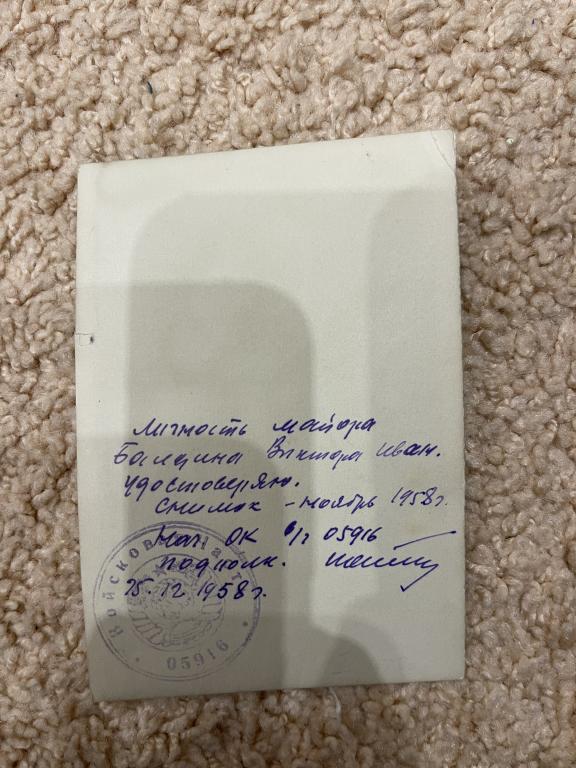 Личность майора
Балдина Виктора Иван.
удостоверяю.
Снимок - ноябрь 1958 г.
Нач ОК в/ч 05916
подполк.
15.12 1958 г.
Войсковая часть
05916